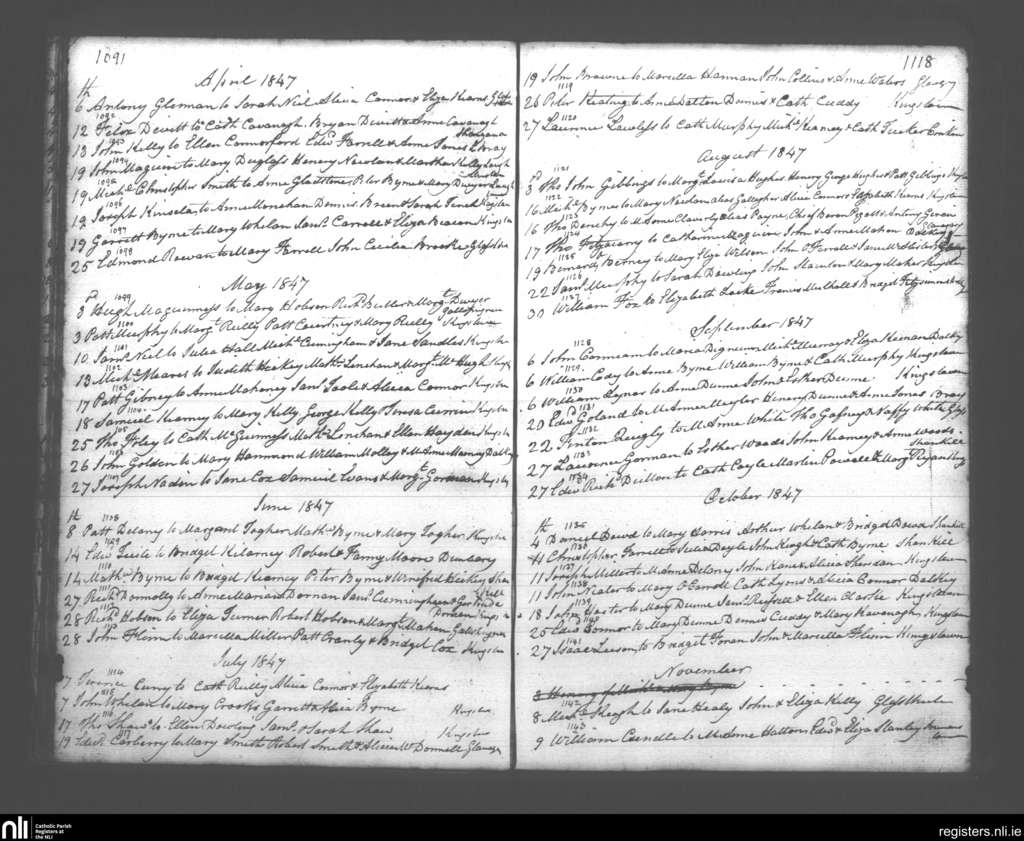 1091
April 1847
6th Antony Glennan to Sarah Neil Alicia Connor & Eliza Kearns
1092
12 Felix Devitt to Cath Cavanagh. Bryan Devitt & Anne Cavanagh
1093
13 John Kelly to Ellen Connorford Edwd Farrell & Anne Jones Bray
1094
19 John Maguire to Mary Duglass Henery Newlan & Martha Kelly
1095
19 Michl Christopher Smith to Anne Gladstone, Peter Byrne & Mary Dwyer
1096
19 Joseph Kinsela to Anne Monehan Dennis Breen & Sarah Kingstn
1097
19 Garrett Byrne to Mary Whelan Jams Carroll & Eliza Beacon Kingstn
1098
25 Edmond Rowan to Mary Farrell John Cecilia Brooke
May 1847
1099
3d Hugh Maguinness to Mary Hobson Richd Butler & Margt Dwyer
1100
3 Patt Murphy to Margt Reilly Patt Courtney & Mary Reilly Kingstown
1101
10 Jams Neil to Julia Hall Michl Cuningham & Jane Sandles Kingstn
1102
13 Michl Meares to Judith Hickey Mathw Linehan & Margt McHugh
1103
17 Patt Gibney to Anne Mahoney Jams Toole & Alicia Connor Kingstn
1104
18 Samuel Kearney to Mary Kelly George Kelly Teresa Currin Kingstn
1105
25 Thos Foley to Cath McGuinness Mathw Linehan & Ellen Hayden Kingstn
1106
26 John Golden to Mary Hammond William Molloy & M Anne Dalkey
1107
27 Joseph Naden to Jane Cox Samuel Evans & Margt Gorman
June 1847
1108
8th Patt Delany to Margaret Togher Mathw Byrne & Mary Togher Kingstn
1109
14 Edwd to Bridget Kilarney Robert & Fanny Moore Dunleary
1110
14 Mathw Byrne to Bridget Kearney Peter Byrne & Winefred Hickey Shan
kill
1111
27 Richd Donnolly to Anne Maria Dornan Jams Cunningham & Gertrude
1112
28 Richd Hobson to Eliza Turner Robert Hobson & Margt Mahon
1113
28 John Flinn to Marcella Miller Patt Cranly & Bridget Cox Kingstn
July 1847
1114
7 Terence Curry to Cath Reilly Alicia Connor & Elizabeth Kearns
1115
7 John Whelan to Mary Crooks Garrett & Alicia Byrne Kingstn
1116
17 Thos to Ellen Dowling Jams & Sarah Shaw Kingstn
1117
19 Edwd Carberry to Mary Smith Robert Smith & Alicia McDonnell
1118
19 John Browne to Marcella Hannan John Collins & Anne Waters
1119
26 Peter Keating to Anne Dalton Dennis & Cath Cuddy Kingstown
1120
27 Laurence Lawless to Cath Murphy Michl Kearney & Cath Tucker
August 1847
1121
3d Thos John Gibbings to Margt Louisa Hughes Henery George Hughes & Patt Gibbings
1122
16 Michl Byrne to Mary Neehan alias Gallagher Alicia Connor & Elizabeth Kearns Kingstown
1123
16 Thos Denehy to M Anne Claverly alias Payne, Chief Baron Pigott & Antony
1124
17 Thos to Catharine Maguire John & Anne Mahon Dalkey
1125
19 Bernard to Mary Eliza Wilson John O'Farrell & Jane
1126
22 Jams Murphy to Sarah Dowling John Staunton & Mary Maher Kingstn
1127
30 William Fox to Elizabeth Leake Francis Mulhall & Bridget Fitzsimmons
September 1847
1128
6 John Connean to Maria Digneum Michl Murray & Eliza Keenan Dalky
1129
6 William Coady to Anne Byrne William Byrne & Cath Murphy Kingstown
1130
6 William Lynas to Anne Dunne John & Esther Dunne Kingstown
1131
20 Edwd Goland to M Anne Meyler Henery Dunne & Anne Jones Bray
1132
22 Finton Quigly to M Anne White Thos Gafney & Naffy White
1133
27 Laurence Gorman to Esther Woods John Kearney & Anne Woods
Shankill
1134
27 Edwd Richd Dillon to Cath Coyle Martin Powell & Margt Ryan Bray
October 1847
1135
4th Daniel Dowd to Mary Harris Arthur Whelan & Bridget Dowd Shankill
1136
11 Christopher Farrell to Julia Doyle John Keogh & Cath Byrne Shankill
1137
11 Joseph Miller to M Anne Delany John Kane & Alicia Sheridan Kingstown
1138
11 John Nealor to Mary O Farrell Cath Lyons & Alicia Connor Dalkey
1139
18 John to Mary Dunne Jams Russell & Ellen Clarke Kingstown
1140
25 Edwd Connor to Mary Dunne Dennis Cuddy & Mary Kavanagh Kingstown
1141
27 Isaac Leeson to Bridget Foran John & Marcella Flinn Kingstown
November
1142
8 Michl Keogh to Jane Healy John & Eliza Kelly
1143
9 William Crindle to M Anne Hatton Edwd & Eliza Stanley
nli
Catholic Parish
Registers at
the NLI
registers.nli.ie